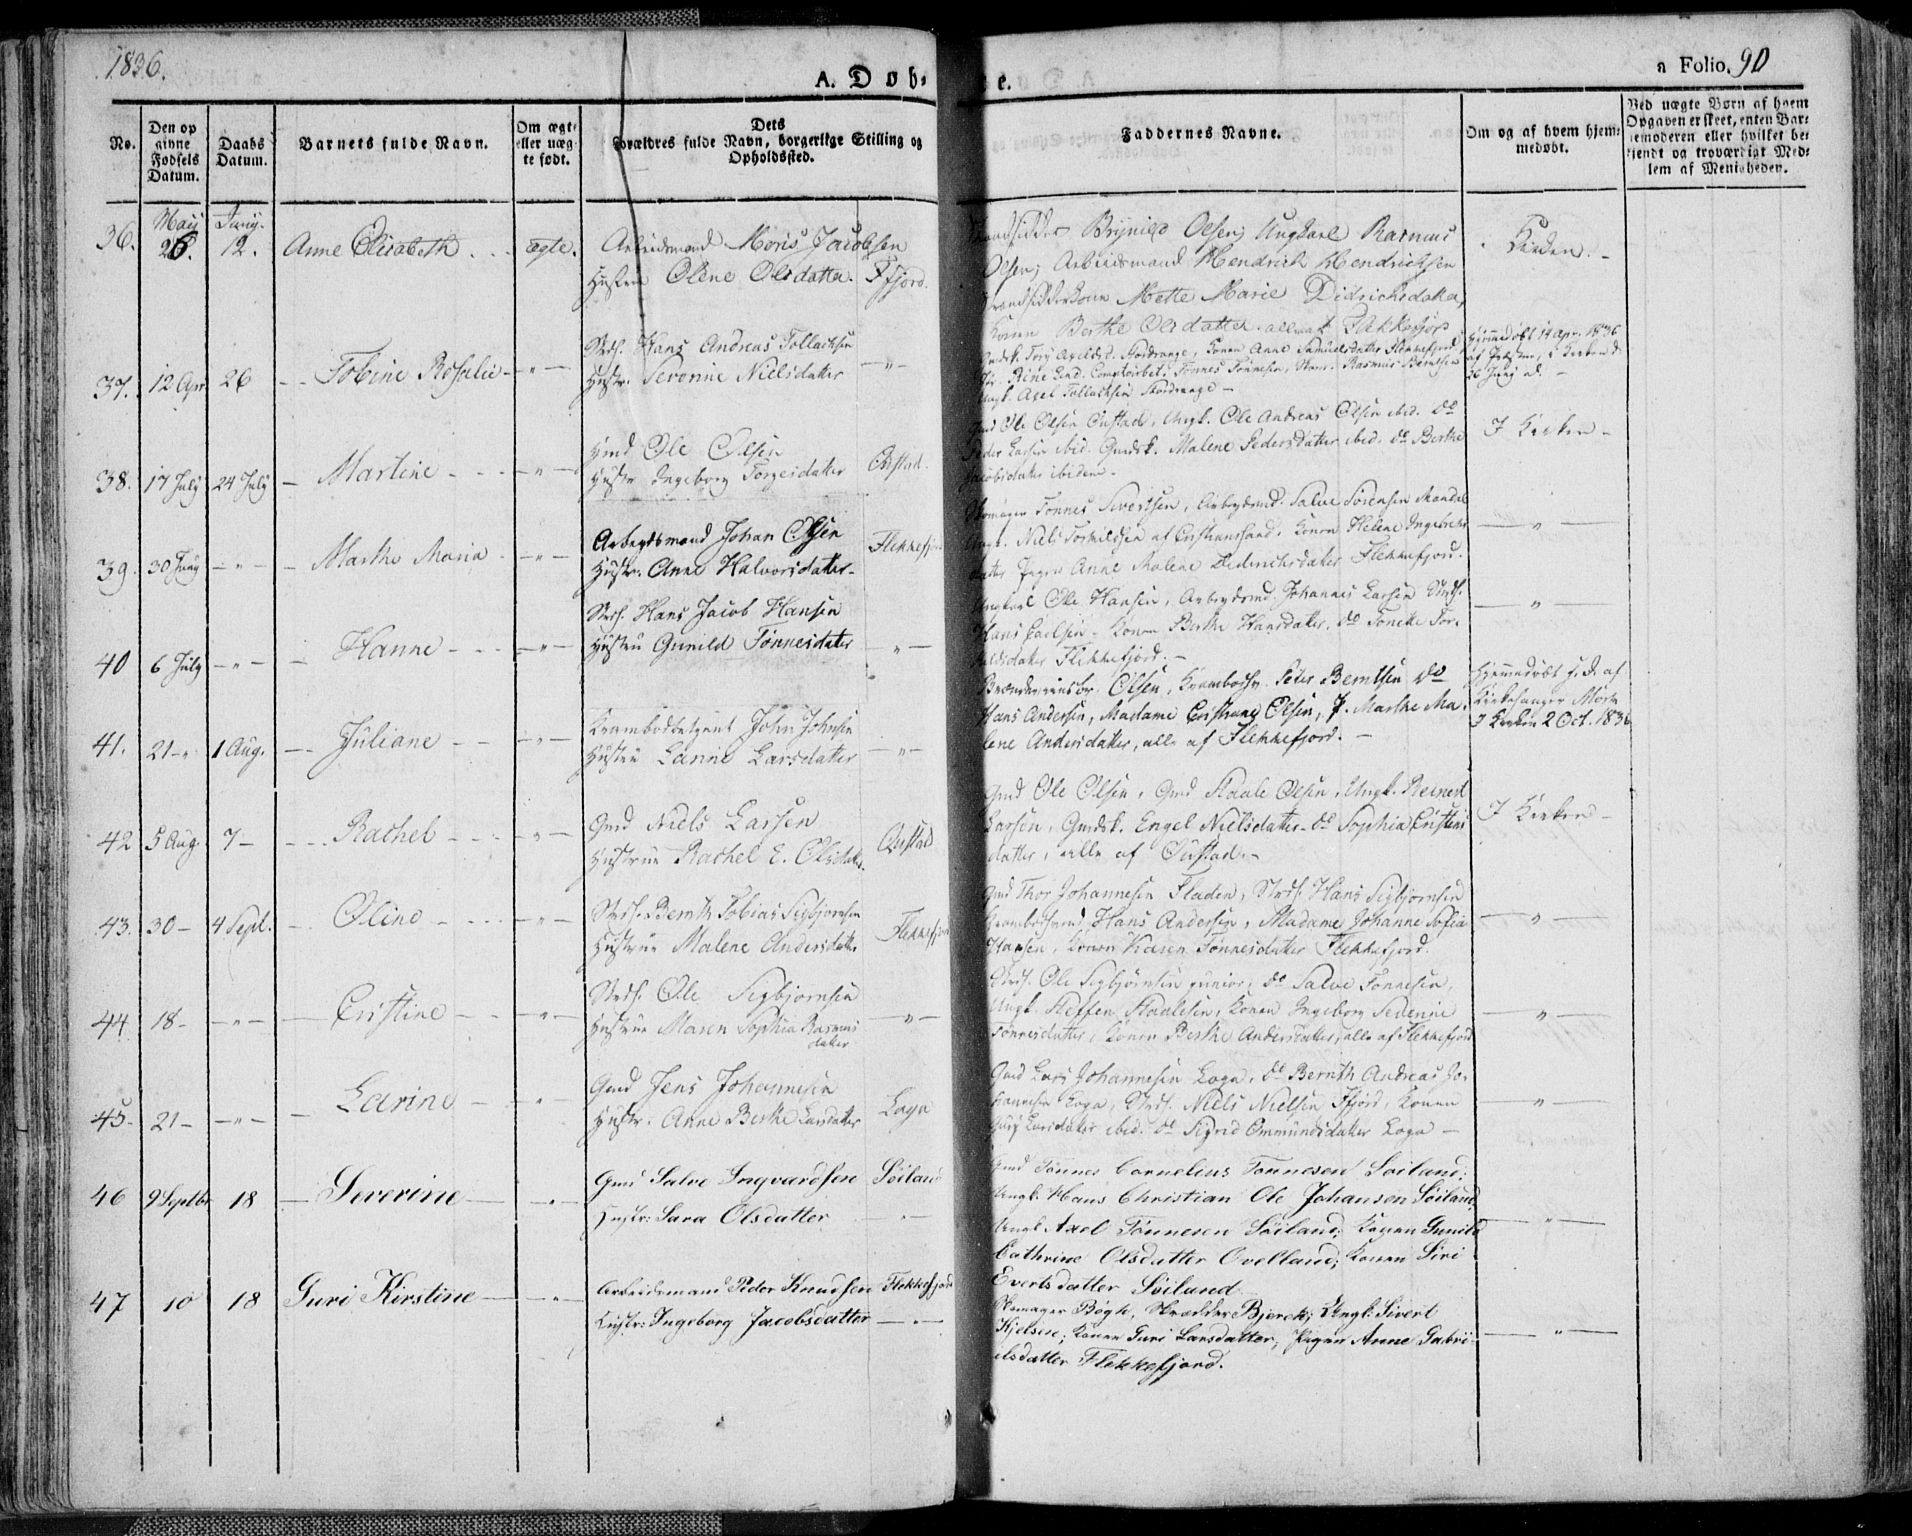 1836.
A. Døb-
e.
a Folio. 90
No.
Den op
givne
Fødsels
Datum.
Daabs
Datum.
Barnets fulde Navn.
Om ægte
eller uæg
te født.
Dets
Forældres fulde Navn, borgerlige Stilling og
Opholdssted.
Faddernes Navne.
Om og af hvem hjem-
medøbt.
Ved uægte Børn af hvem
Opgaven er skeet, enten Bar-
nemoderen eller hvilket be-
kjendt og troværdigt Med-
lem af Menigheden.
36. Maij 26. Junij 12. Anne Elisabeth ægte.
Arbeidsmand Moris Jacobsen
Hustru Oline Olsdatter. Ffjord.
Brynild Olsen, Ungkarl Rasmus
Olsen; Arbeidsmand Hendrich Hendrichsen
Mette Marie Didrichsdatter,
Konen Berthe Olsdatter
Kirken.
37. 12 Apr 26 Tobine Rosalie - " -
Strds. Hans Andreas Tollachsen
Hustr. Seronne Nielsdatter - " -
Konen Anne Samuelsdatter Flekkefjord
Tønnes Tønnesen, Rasmus Berntsen
Ungk. Axel Tollachsen
Hjemmedøbt 14 Apr. 1836
af Præsten, i Kirken d.
26 Junij
38. 17 July 24 July Martine - " -
Gmd Ole Olsen
Hustr Ingeborg Torgesdatter Oustad.
Gmd Ole Olsen Oustad, Ungk. Ole Andreas Olsen ibid. do
Peder Larsen ibid. Gmdsk. Malene Pedersdatter ibid. do Berthe
Jacobsdatter ibidem -
I Kirken -
39. 30 Juny - " - Marthe Maria - " -
Arbeydsmand Johan Olsen
Hustr. Anne Halvorsdatter - Flekkefjord
Skomager Tønnes Sivertsen, Arbeydsmd. Salve Sørensen Mandal
Ungk. Niels Torkildsen af Cristiansand, Konen Helene Ingebrets
datter Pigen Anne Malene Diderichsdatter Flekkefjord.
- " -
40 6 July - " - Hanne - " -
Strds. Hans Jacob Hansen
Hustru Gunild Tønnesdatter - " -
Ungkarl Ole Hansen, Arbeydsmd Johannes Larsen Strds.
Hans Carlsen - Konen Berthe Hansdatter, do Tonette Tor-
kildsdatter Flekkefjord. -
- " -
41. 21 - " 1 Aug. Juliane - " -
Krambodbetjent John Johnsen
Hustru Lanne Larsdatter - " -
Olsen, Peter Berntsen do
Hans Andersen, Madame Cristiane Olsen, P. Marthe Ma-
lene Andersdatter, alle af Flekkefjord. -
Hjemmedøbt s. D. af
Kirkesanger Mørk
I Kirken 2 Oct. 1836
42 5 Aug. 7 - Rachel - " -
Gmd Niels Larsen
Hustrue Rachel E. Olsdatter. Oustad
Gmd Ole Olsen, Gmd Staale Olsen, Ungk. Reinert
Larsen, Gmdsk. Engel Nielsdatter - do Sophia Cristens
datter, alle af Oustad. -
I Kirken -
43. 30 - 4 Sept. Oline - " -
Strds. Bernth Tobias Sigbjørnsen
Hustrue Malene Andersdatter Flekkefjord
Gmd Thor Johannesen Fladen, Strds. Hans Sigbjørnsen
Hans Andersen, Madame Johanne Sofia
Hansen, Konen Karen Tønnesdatter Flekkefjord.
- " -
44. 18 - - " - Cristine - " -
Strds. Ole Sigbjørnsen
Hustrue Maren Sophia Rasmus
datter - " -
Strds. Ole Sigbjørnsen junior, do Salve Tønnesen,
Ungk. Steffen Staalesen, Konen Ingeborg Sedenie
Tønnesdatter, Konen Berthe Andersdatter, alle af Flekkefjord
- " -
45. 21 - - " - Larine - " -
Gmd Jens Johannesen
Hustr. Anne Berthe Larsdatter Loga
Gmd Lars Johannesen Loga, do Bernth Andreas Jo-
hannesen Loga, Strds. Niels Nielsen Ffjord, Konen
Larsdatter ibid. do Sigrid Ommundsdatter Loga -
- " -
46 9 Septbr 18 Severine - " -
Gmd Salve Ingvardsen Søiland
Hustr: Sara Olsdatter - " -
Gmd Tønnes Cornelius Tønnesen Søiland;
Ungk. Hans Christian Ole Johansen Søiland,
Ungk. Axel Tønnesen Søiland; Konen Gunild
Cathrine Olsdatter Ovelland; Konen Siri
Evertsdatter Søiland
- " -
47 10 18 Guri Kirstine - " -
Arbeidsmand Peder Knudsen Flekkefjord
Hustr: Ingeborg Jacobsdatter - " -
Skomager Bøgh, Skrædder Bjerck; Ungk: Sivert
Kjelsen; Konen Guri Larsdatter, Pigen Anne Gabri-
elsdatter Flekkefjord.
- " -